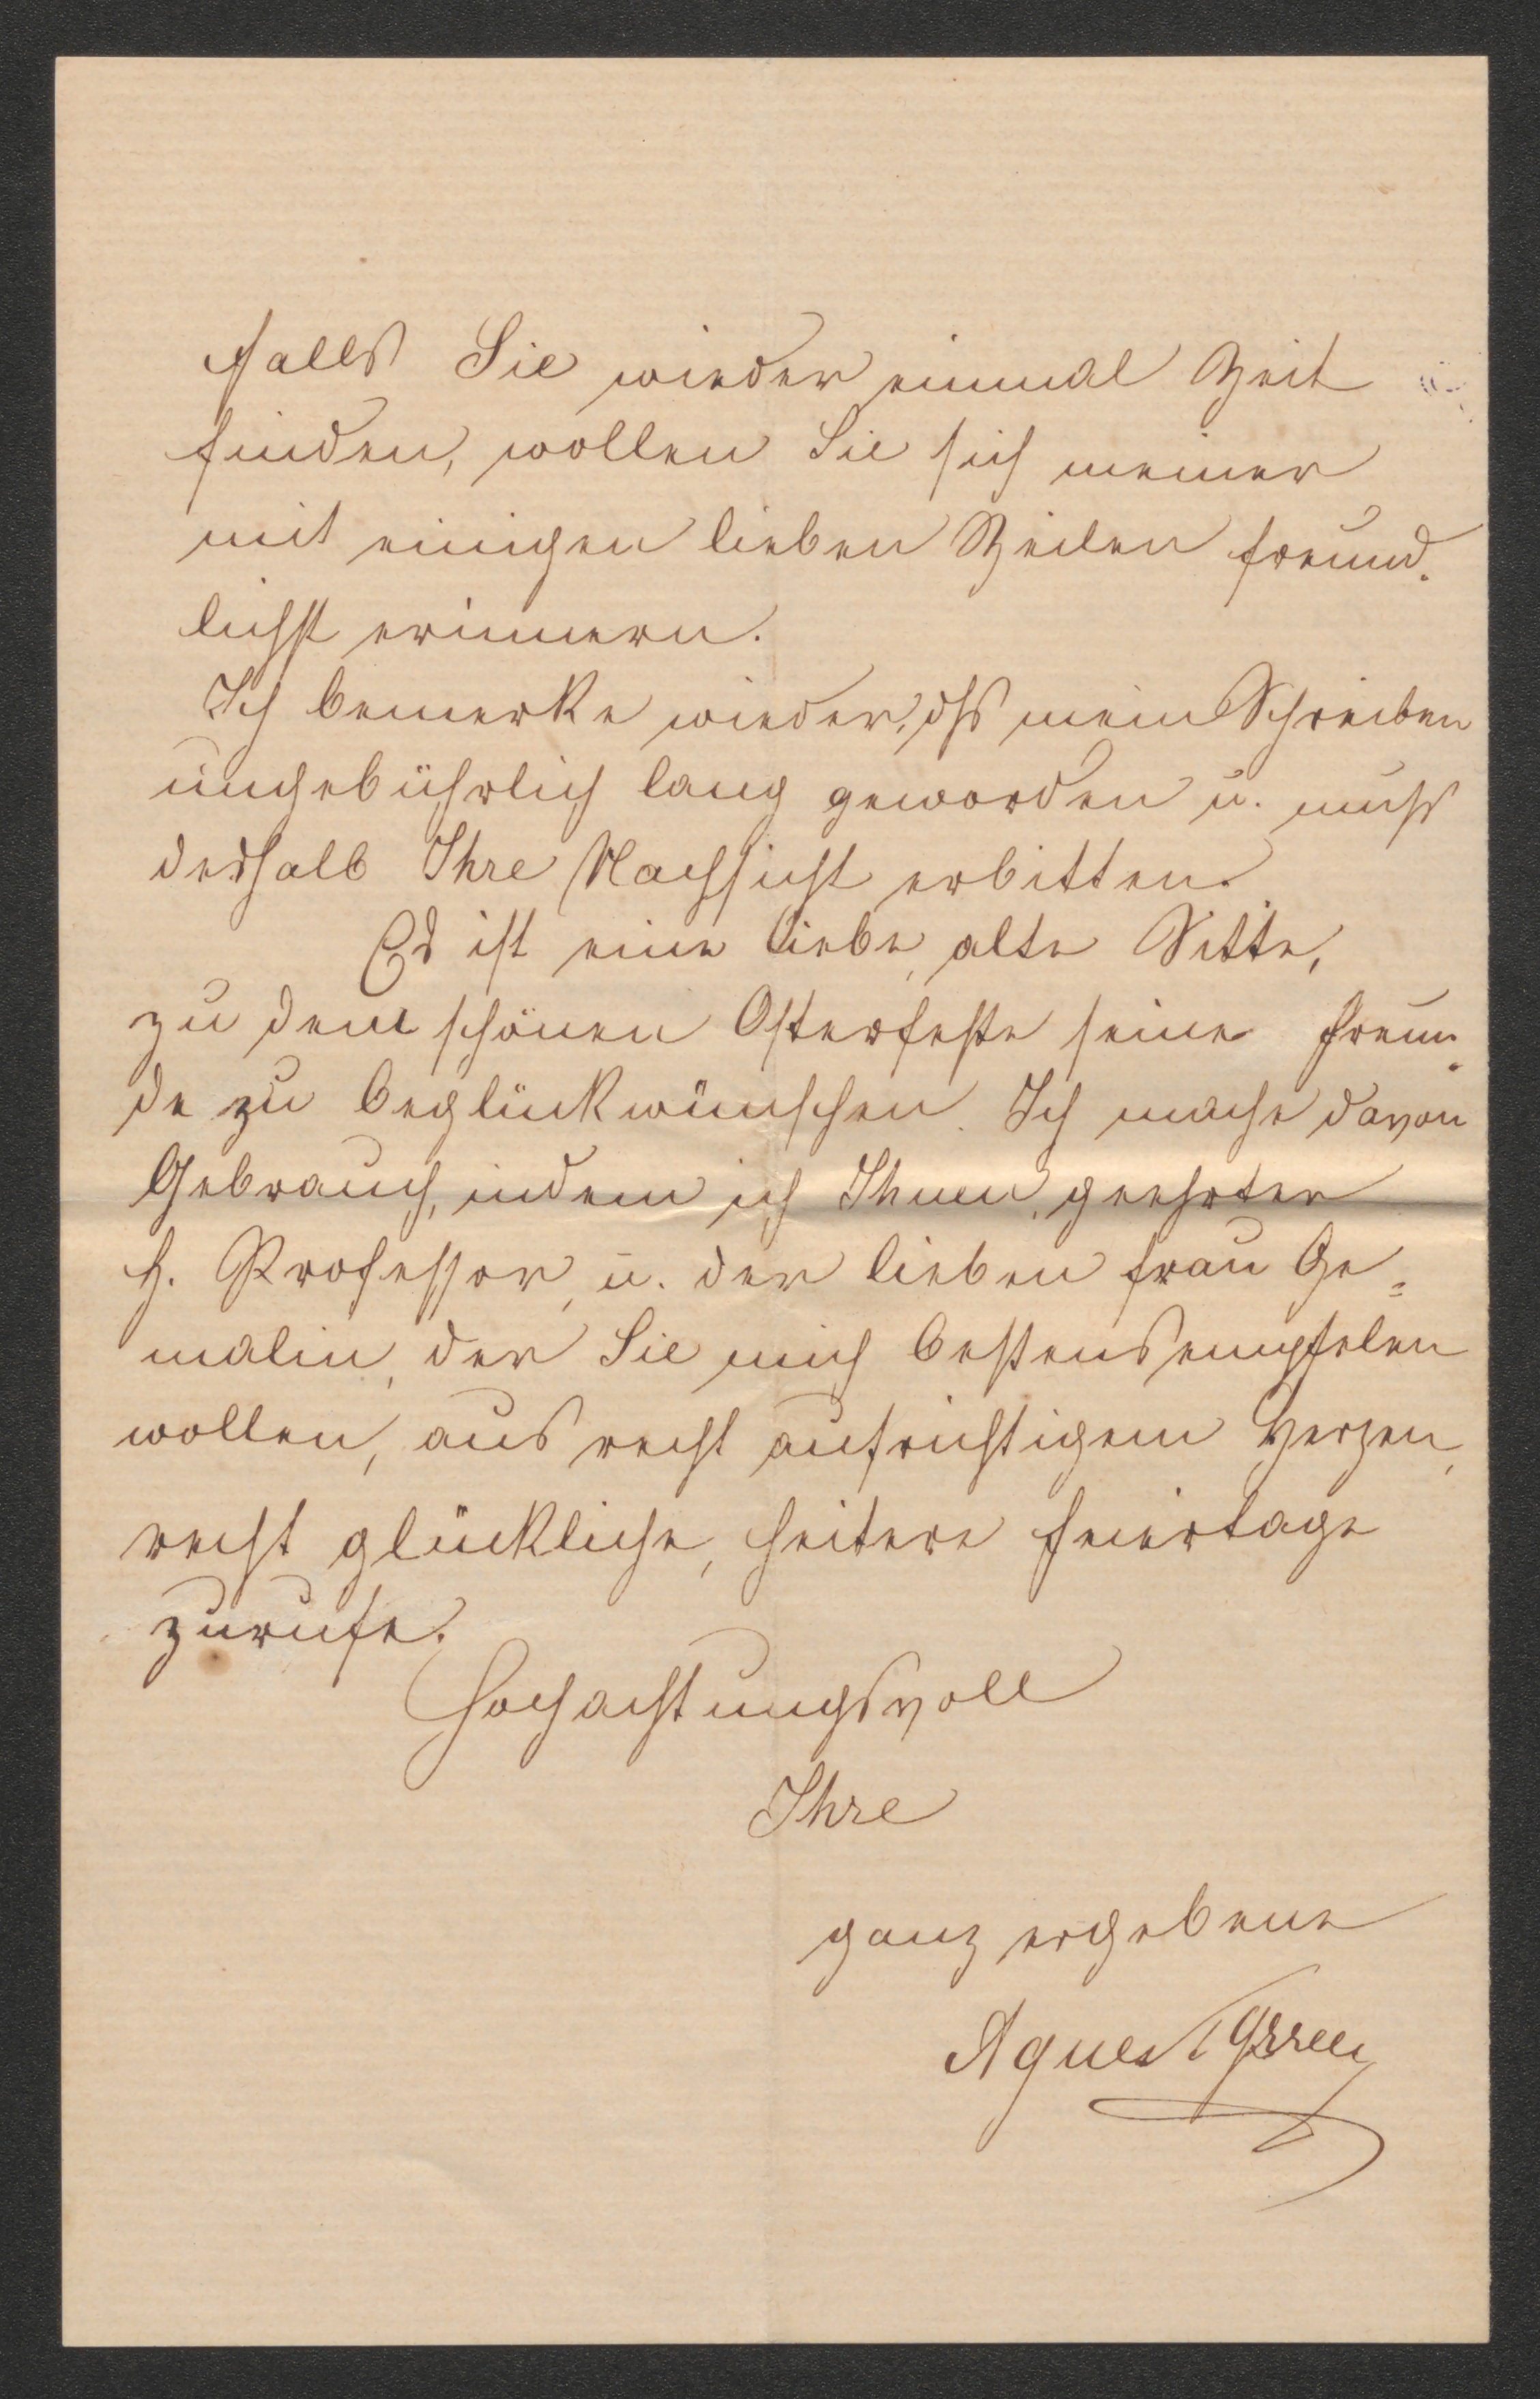 falls Sie wieder einmal Zeit
finden, wollen Sie sich meiner
mit einigen lieben Zeilen freund-
lichst erinnern.
Ich bemerke wieder, dß mein Schreiben
ungebührlich lang geworden u. muß
deshalb Ihre Nachsicht erbitten.
Es ist eine liebe, alte Sitte,
zu dem schönen Osterfeste seine Freun-
de zu beglückwünschen. Ich mache davon
Gebrauch, indem ich Ihnen, geehrter
H. Professor, u. der lieben Frau Ge=
malin, der Sie mich bestens empfelen
wollen, aus recht aufrichtigem Herzen,
recht glückliche, heitere Feiertage
zurufe.
Hochachtungsvoll
Ihre
ganz ergebene
Agnes